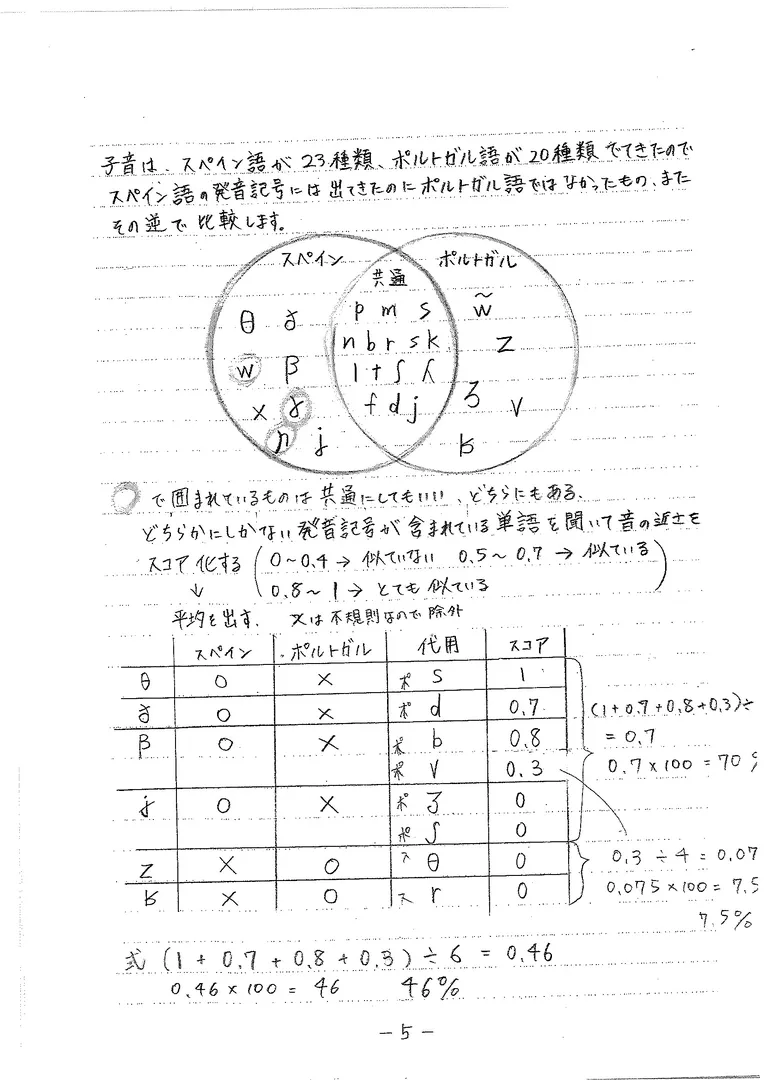 子音は、スペイン語が23種類、ポルトガル語が20種類でてきたので
スペイン語の発音記号には出てきたのにポルトガル語ではなかったもの、また
その逆で比較します。
スペイン 共通 ポルトガル
p m s w̃
θ
n b r s k z
w β
l t ʃ ʎ
x f d j ʒ v
ɲ ʝ ʁ
で囲まれているものは共通にしてもいい、どちらにもある。
どちらかにしかない発音記号が含まれている単語を聞いて音の近さを
スコア化する (0~0.4→似ていない 0.5~0.7→似ている
↓ 0.8~1→とても似ている)
平均を出す、 xは不規則なので除外
スペイン ポルトガル 代用 スコア
θ ○ × ポ s 1
○ × ポ d 0.7 (1+0.7+0.8+0.3)÷
β ○ × ポ b 0.8 = 0.7
ポ v 0.3 0.7×100=70
ʝ ○ × ポ ʒ 0
ポ ʃ 0
z × ○ ス θ 0 0.3÷4=0.07
ʁ × ○ ス r 0 0.075×100=7.5
7.5%
式 (1+0.7+0.8+0.3)÷6=0.46
0.46×100=46 46%
-5-